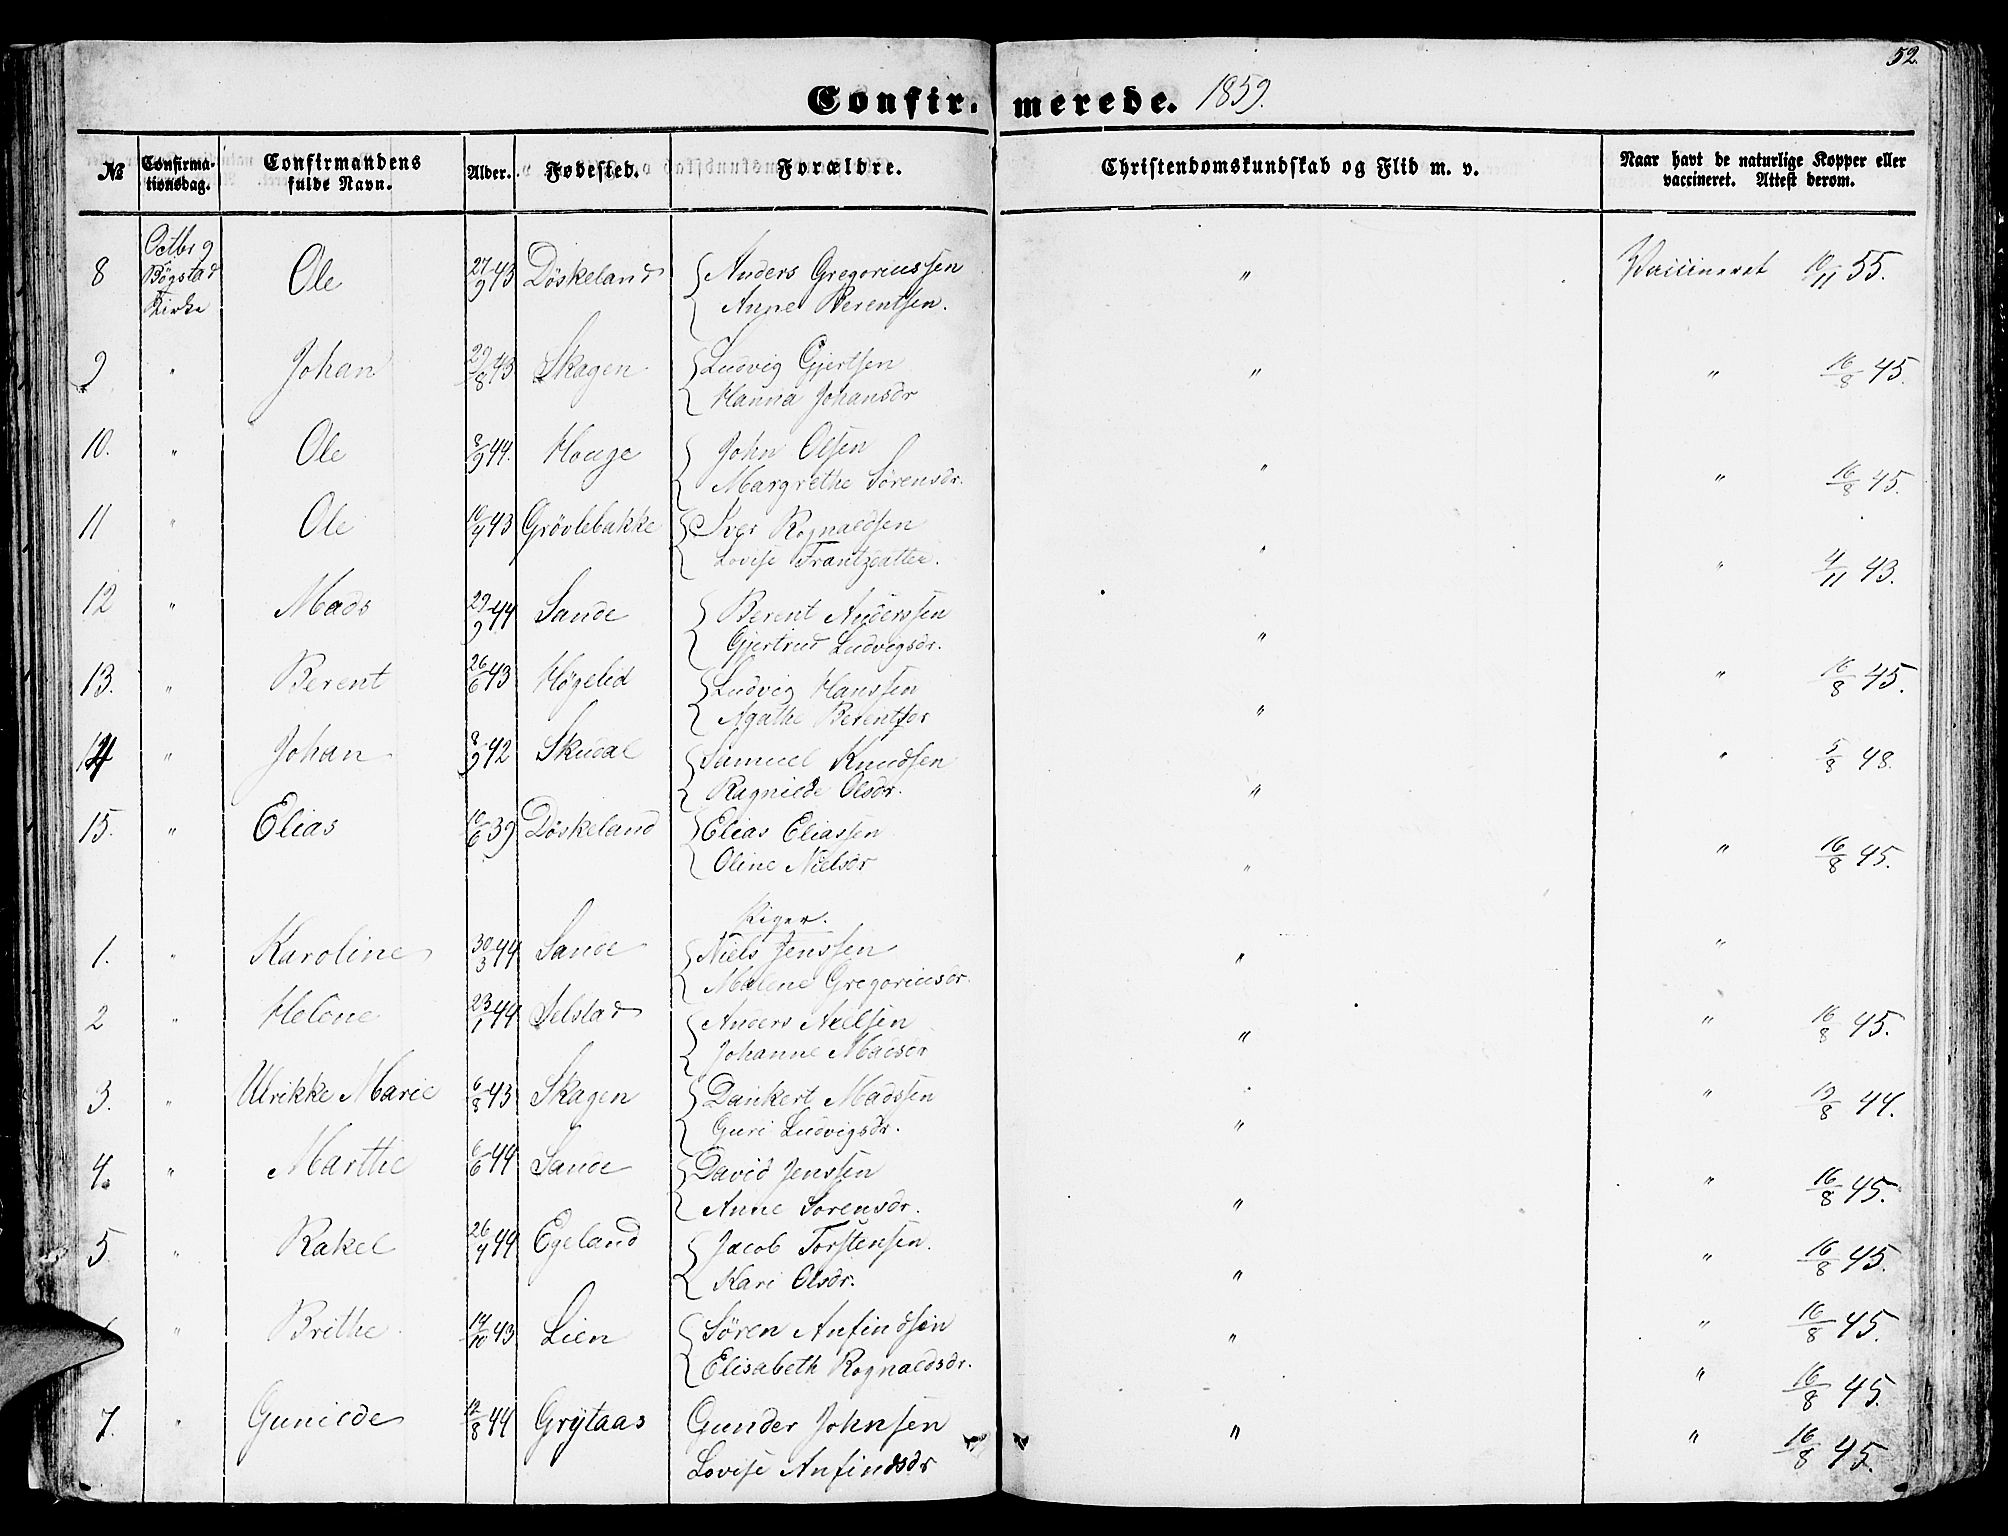 52.
Confirmerede. 1859.
№ Confirmationsdag. Confirmandens fulde Navn. Alder. Fødested. Forældre. Christendomskundskab og Flid m. v. Naar havt de naturlige Kopper eller vaccineret. Attest derom.
8 Octbr 9 Bögstad Kirke Ole 27/9 43 Döskeland Anders Gregoriussen " Vaccineret 10/11 55.
Anne Berentsen.
9 " Johan 29/8 43 Skagen Ludvig Gjertsen " " 16/8 45.
Hanna Johansdr
10. " Ole 8/9 44. Houge John Olsen " " 16/8 45.
Margrethe Sørensdr.
11 " Ole 10/9 43 Grövlebakke Iver Rognaldsen " " 4/11 43.
Lovise Frantzdatter.
12 " Mads 29/9 44 Sande Berent Anderssen "
Gjertrud Ludvigsdr.
13. " Berent 26/6 43 Högelid Ludvig Hanssen " " 16/8 45.
Agathe Berentsdr
14 " Johan 8/9 42 Skudal Samuel Knudsen " " 5/8 48.
Ragnilde Olsdr.
15. " Elias 10/6 39 Döskeland Elias Eliassen " " 16/8 45.
Oline Nielsdr
Piger.
1. " Karoline 30/3 44 Sande Niels Jenssen " "
Malene Gregoriusdr.
2 " Helone 23/1 44 Selstad Anders Axelsen " " 16/8 45.
Johanne Madsdr
3. " Ulrikke Marie 6/8 43 Skagen Dankert Madssen " " 19/8 44.
Guri Ludvigsdr.
4. " Marthe 6/6 44 Sande David Jenssen " " 16/8 45.
Anne Sorensdr.
5 " Rakel 26/4 44 Egeland Jacob Torstensen. " " 16/8 45.
Kari Olsdr.
" Brithe 14/10 43 Lien Sören Anfindsen " " 16/8 45.
Elisabeth Rognaldsdr. " 16/8 45.
7. " Gunilde 12/8 44 Grytaas Gunder Johnsen " " 16/8 45.
Lovise Anfindsdr